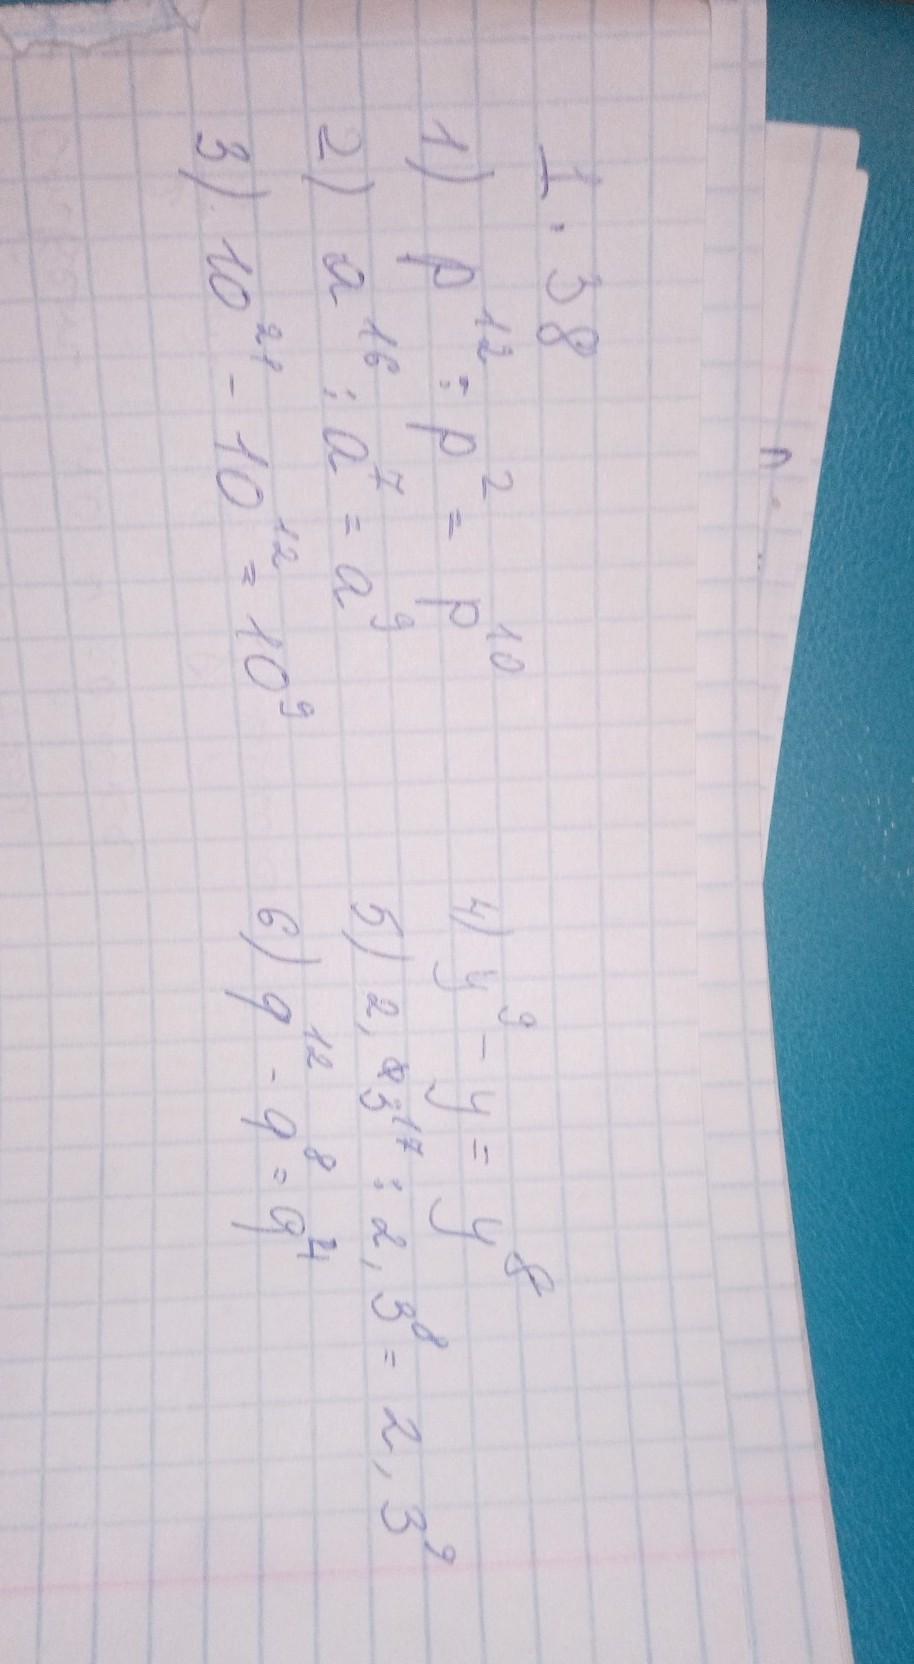 1.38
1) p¹² : p² = p¹⁰
2) a¹⁶ : a⁷ = a⁹
3) 10²¹ - 10¹² = 10⁹
4) y⁹ - y = y⁸
5) 2,3¹⁷ : 2,3⁸ = 2,3⁹
6) q¹² - q⁸ = q⁴